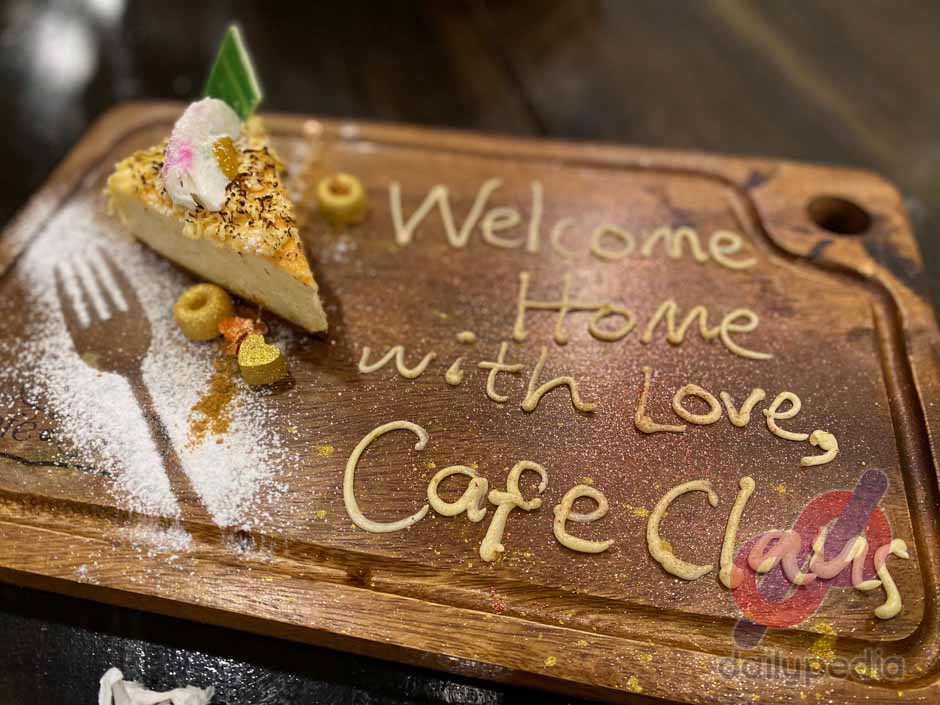 Welcome
Home
with Love,
Cafe Claus
dailypedia